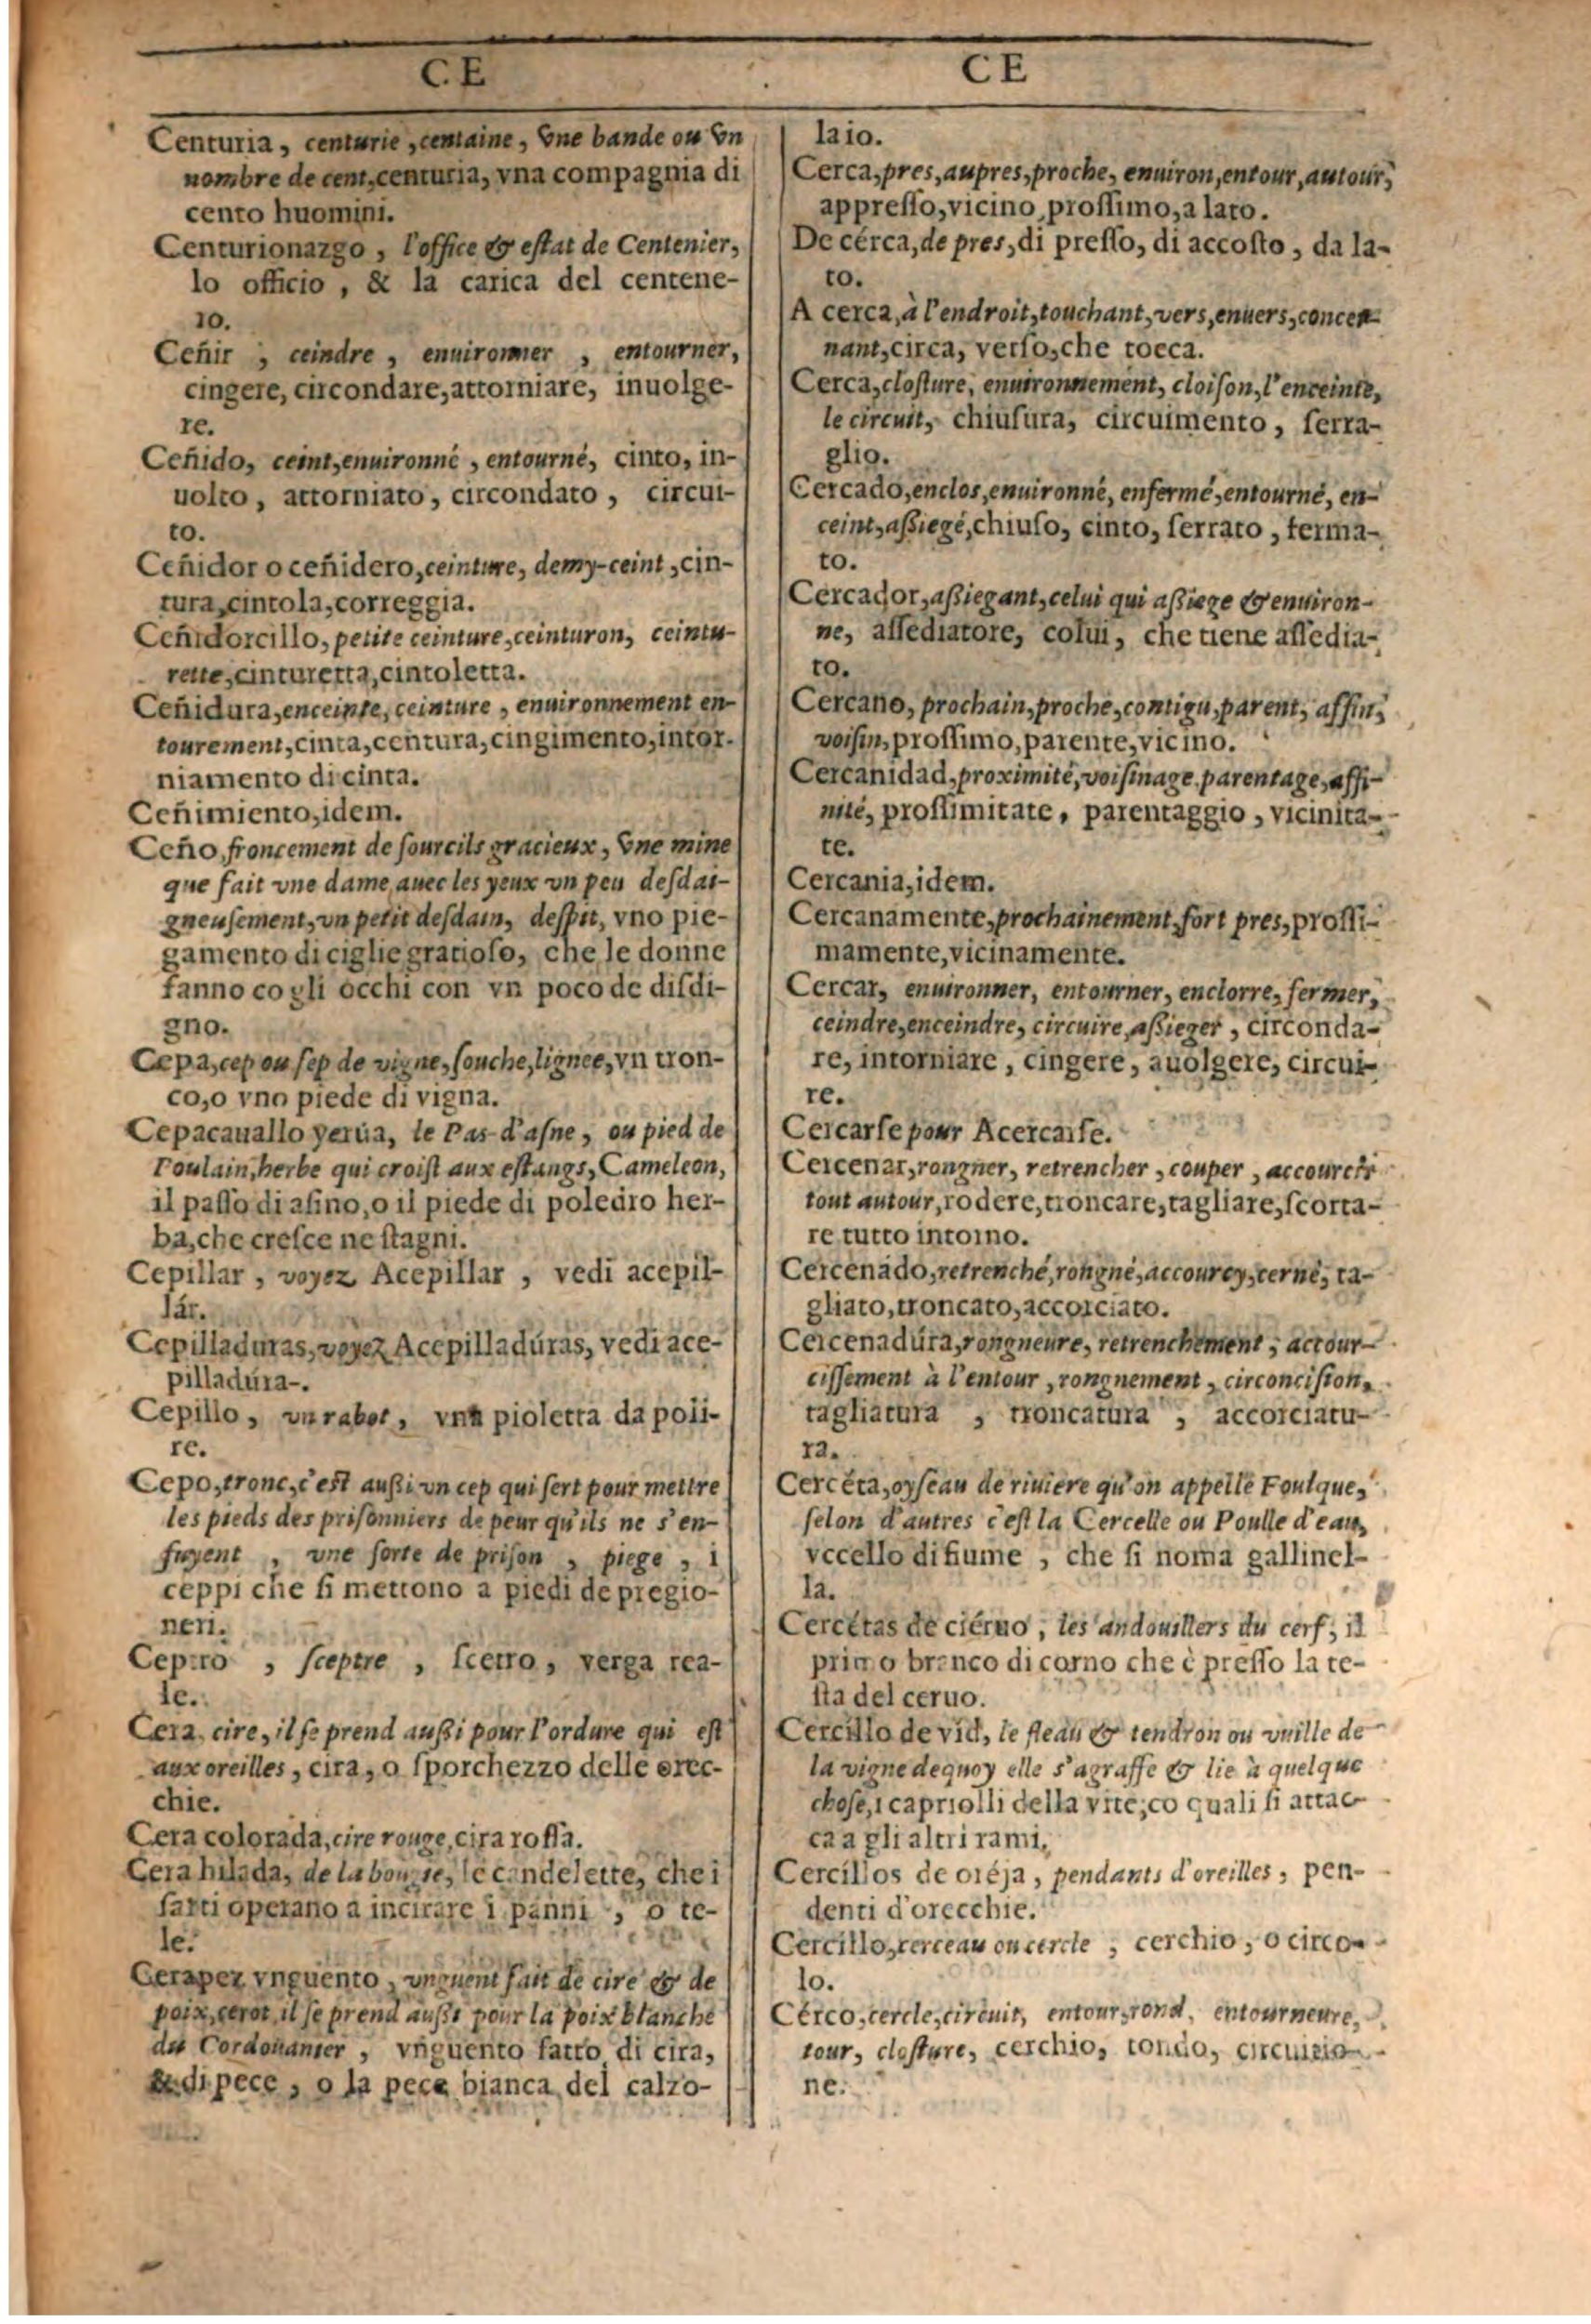 CE
Centuria, centurie, centaine, vne bande ou vn
nombre de cent, centuria, vna compagnia di
cento huomini.
Centurionazgo, l'office & eſtat de Centenier,
lo officio, & la carica del centene-
ro.
Ceñir, ceindre, enuironner, entourner,
cingere, circondare, attorniare, inuolge-
re.
Ceñido, ceint, enuironné, entourné, cinto, in-
uolto, attorniato, circondato, circui-
to.
Ceñidor o ceñidero, ceinture, demy-ceint, cin-
tura, cintola, correggia.
Ceñidorcillo, petite ceinture, ceinturon, ceintu-
rette, cinturetta, cintoletta.
Ceñidura, enceinte, ceinture, enuironnement en-
tourement, cinta, centura, cingimento, intor-
niamento di cinta.
Ceñimiento, idem.
Ceño, froncement de ſourcils gracieux, vne mine
que fait vne dame auec les yeux vn peu deſdai-
gneuſement, vn petit deſdain, deſpit, vno pie-
gamento di ciglie gratioſo, che le donne
fanno co gli occhi con vn poco de diſdi-
gno.
Cepa, cep ou ſep de vigne, ſouche, lignee, vn tron-
co, o vno piede di vigna.
Cepacauallo yerúa, le Pas-d'aſne, ou pied de
Poulain, herbe qui croiſt aux eſtangs, Cameleon,
il paſſo di aſino, o il piede di poledro her-
ba, che creſce ne ſtagni.
Cepillar, voyez Acepillar, vedi acepil-
lár.
Cepilladuras, voyez Acepilladúras, vedi ace-
pilladúra-.
Cepillo, vn rabot, vna pioletta da poli-
re.
Cepo, tronc, c'eſt auſſi vn cep qui ſert pour mettre
les pieds des priſonniers de peur qu'ils ne s'en-
fuyent, vne ſorte de priſon, piege, i
ceppi che ſi mettono a piedi de pregio-
neri.
Ceptro, ſceptre, ſcettro, verga rea-
le.
Cera, cire, il ſe prend auſſi pour l'ordure qui eſt
aux oreilles, cira, o ſporchezzo delle orec-
chie.
Cera colorada, cire rouge, cira roſſa.
Cera hilada, de la bougie, le candelette, che i
ſarti operano a incirare i panni, o te-
le.
Cerapez vnguento, vnguent fait de cire & de
poix, cerot, il ſe prend auſſi pour la poix blanche
du Cordoüanier, vnguento fatto di cira,
& di pece, o la pece bianca del calzo-
CE
laio.
Cerca, pres, aupres, proche, enuiron, entour, autour,
appreſſo, vicino, proſſimo, a lato.
De cérca, de pres, di preſſo, di accoſto, da la-
to.
A cerca, à l'endroit, touchant, vers, enuers, concer-
nant, circa, verſo, che tocca.
Cerca, cloſture, enuironnement, cloiſon, l'enceinte,
le circuit, chiuſura, circuimento, ſerra-
glio.
Cercado, enclos, enuironné, enfermé, entourné, en-
ceint, aſſiegé, chiuſo, cinto, ſerrato, ferma-
to.
Cercador, aſſiegant, celui qui aſſiege & enuiron-
ne, aſſediatore, colui, che tiene aſſedia-
to.
Cercano, prochain, proche, contigu, parent, affin,
voiſin, proſſimo, parente, vicino.
Cercanidad, proximité, voiſinage, parentage, affi-
nité, proſſimitate, parentaggio, vicinita-
te.
Cercania, idem.
Cercanamente, prochainement, fort pres, proſſi-
mamente, vicinamente.
Cercar, enuironner, entourner, enclorre, fermer,
ceindre, enceindre, circuire, aſſieger, circonda-
re, intorniare, cingere, auolgere, circui-
re.
Cercarſe pour Acercarſe.
Cercenar, rongner, retrencher, couper, accourcir
tout autour, rodere, troncare, tagliare, ſcorta-
re tutto intorno.
Cercenádo, retrenché, rongné, accourcy, cerné, ta-
gliato, troncato, accorciato.
Cercenadúra, rongneure, retrenchement, accour-
ciſſement à l'entour, rongnement, circonciſion,
tagliatura, troncatura, accorciatu-
ra.
Cercéta, oyſeau de riuiere qu'on appelle Foulque,
ſelon d'autres c'eſt la Cercelle ou Poulle d'eau,
vccello di fiume, che ſi noma gallinel-
la.
Cercétas de ciéruo, les andouillers du cerf, il
primo branco di corno che è preſſo la te-
ſta del ceruo.
Cercillo de vid, le fleau & tendron ou vuille de
la vigne dequoy elle s'agraffe & lie à quelque
choſe, i capriolli della vite, co quali ſi attac-
ca a gli altri rami.
Cercillos de oréja, pendants d'oreilles, pen-
denti d'orecchie.
Cercillo, cerceau ou cercle, cerchio, o circo-
lo.
Cérco, cercle, circuit, entour, rond, entourneure,
tour, cloſture, cerchio, tondo, circuitio-
ne.